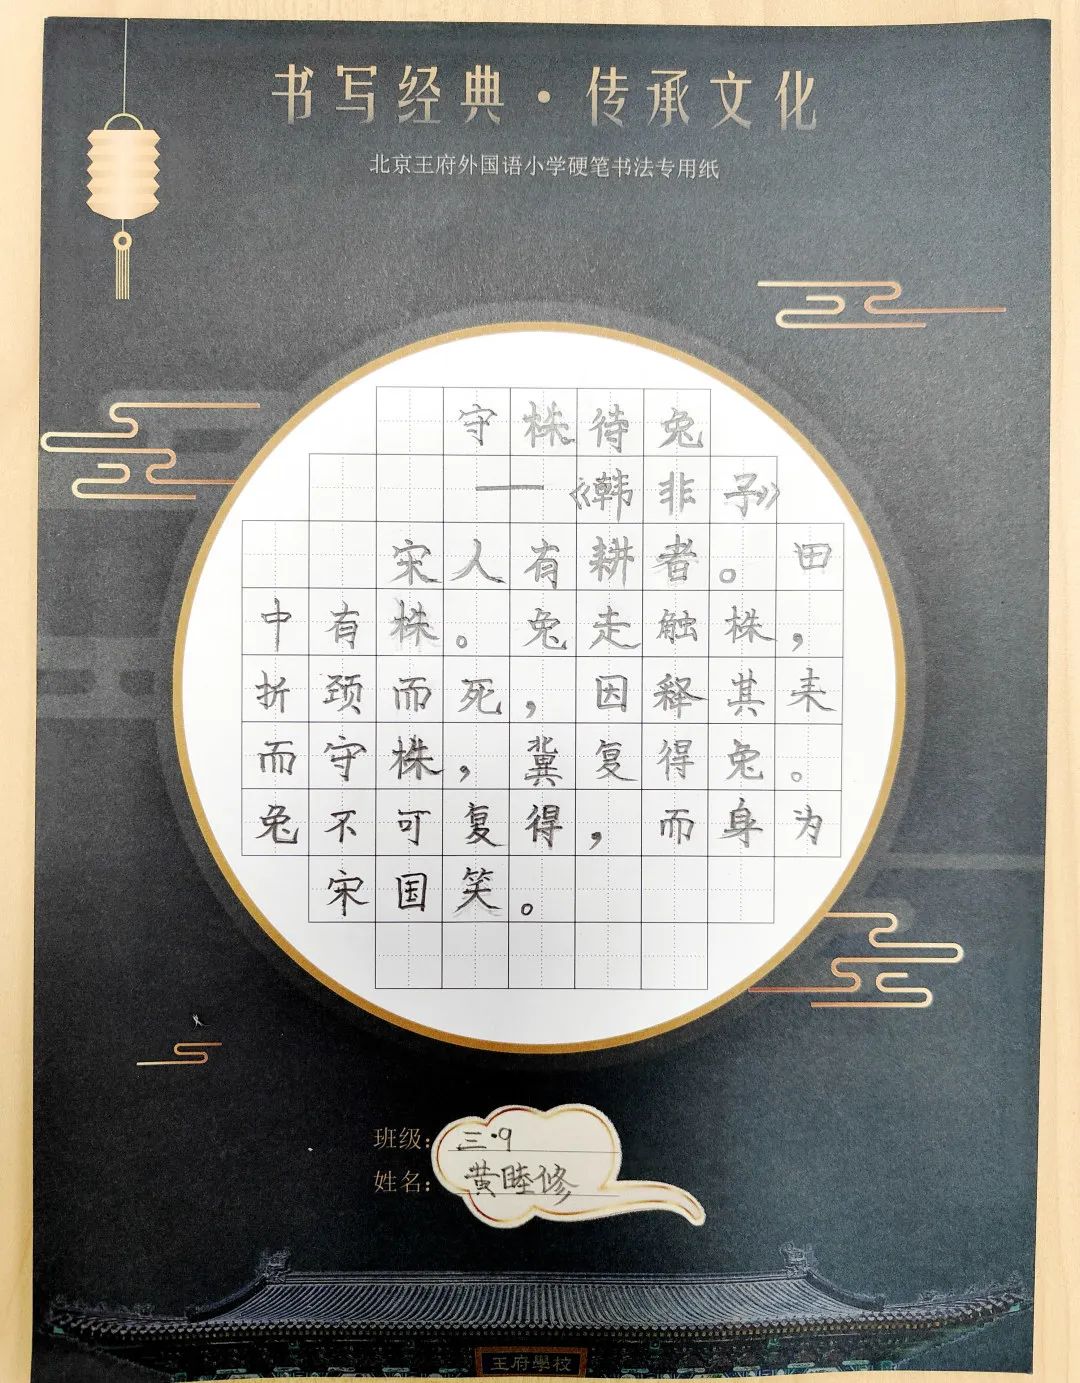 书写经典·传承文化
北京王府外国语小学硬笔书法专用纸
守株待兔
——《韩非子》
宋人有耕者。田
中有株。兔走触株，
折颈而死，因释其耒
而守株，冀复得兔。
兔不可复得，而身为
宋国笑。
班级：三·9
姓名：黄睦修
王府學校